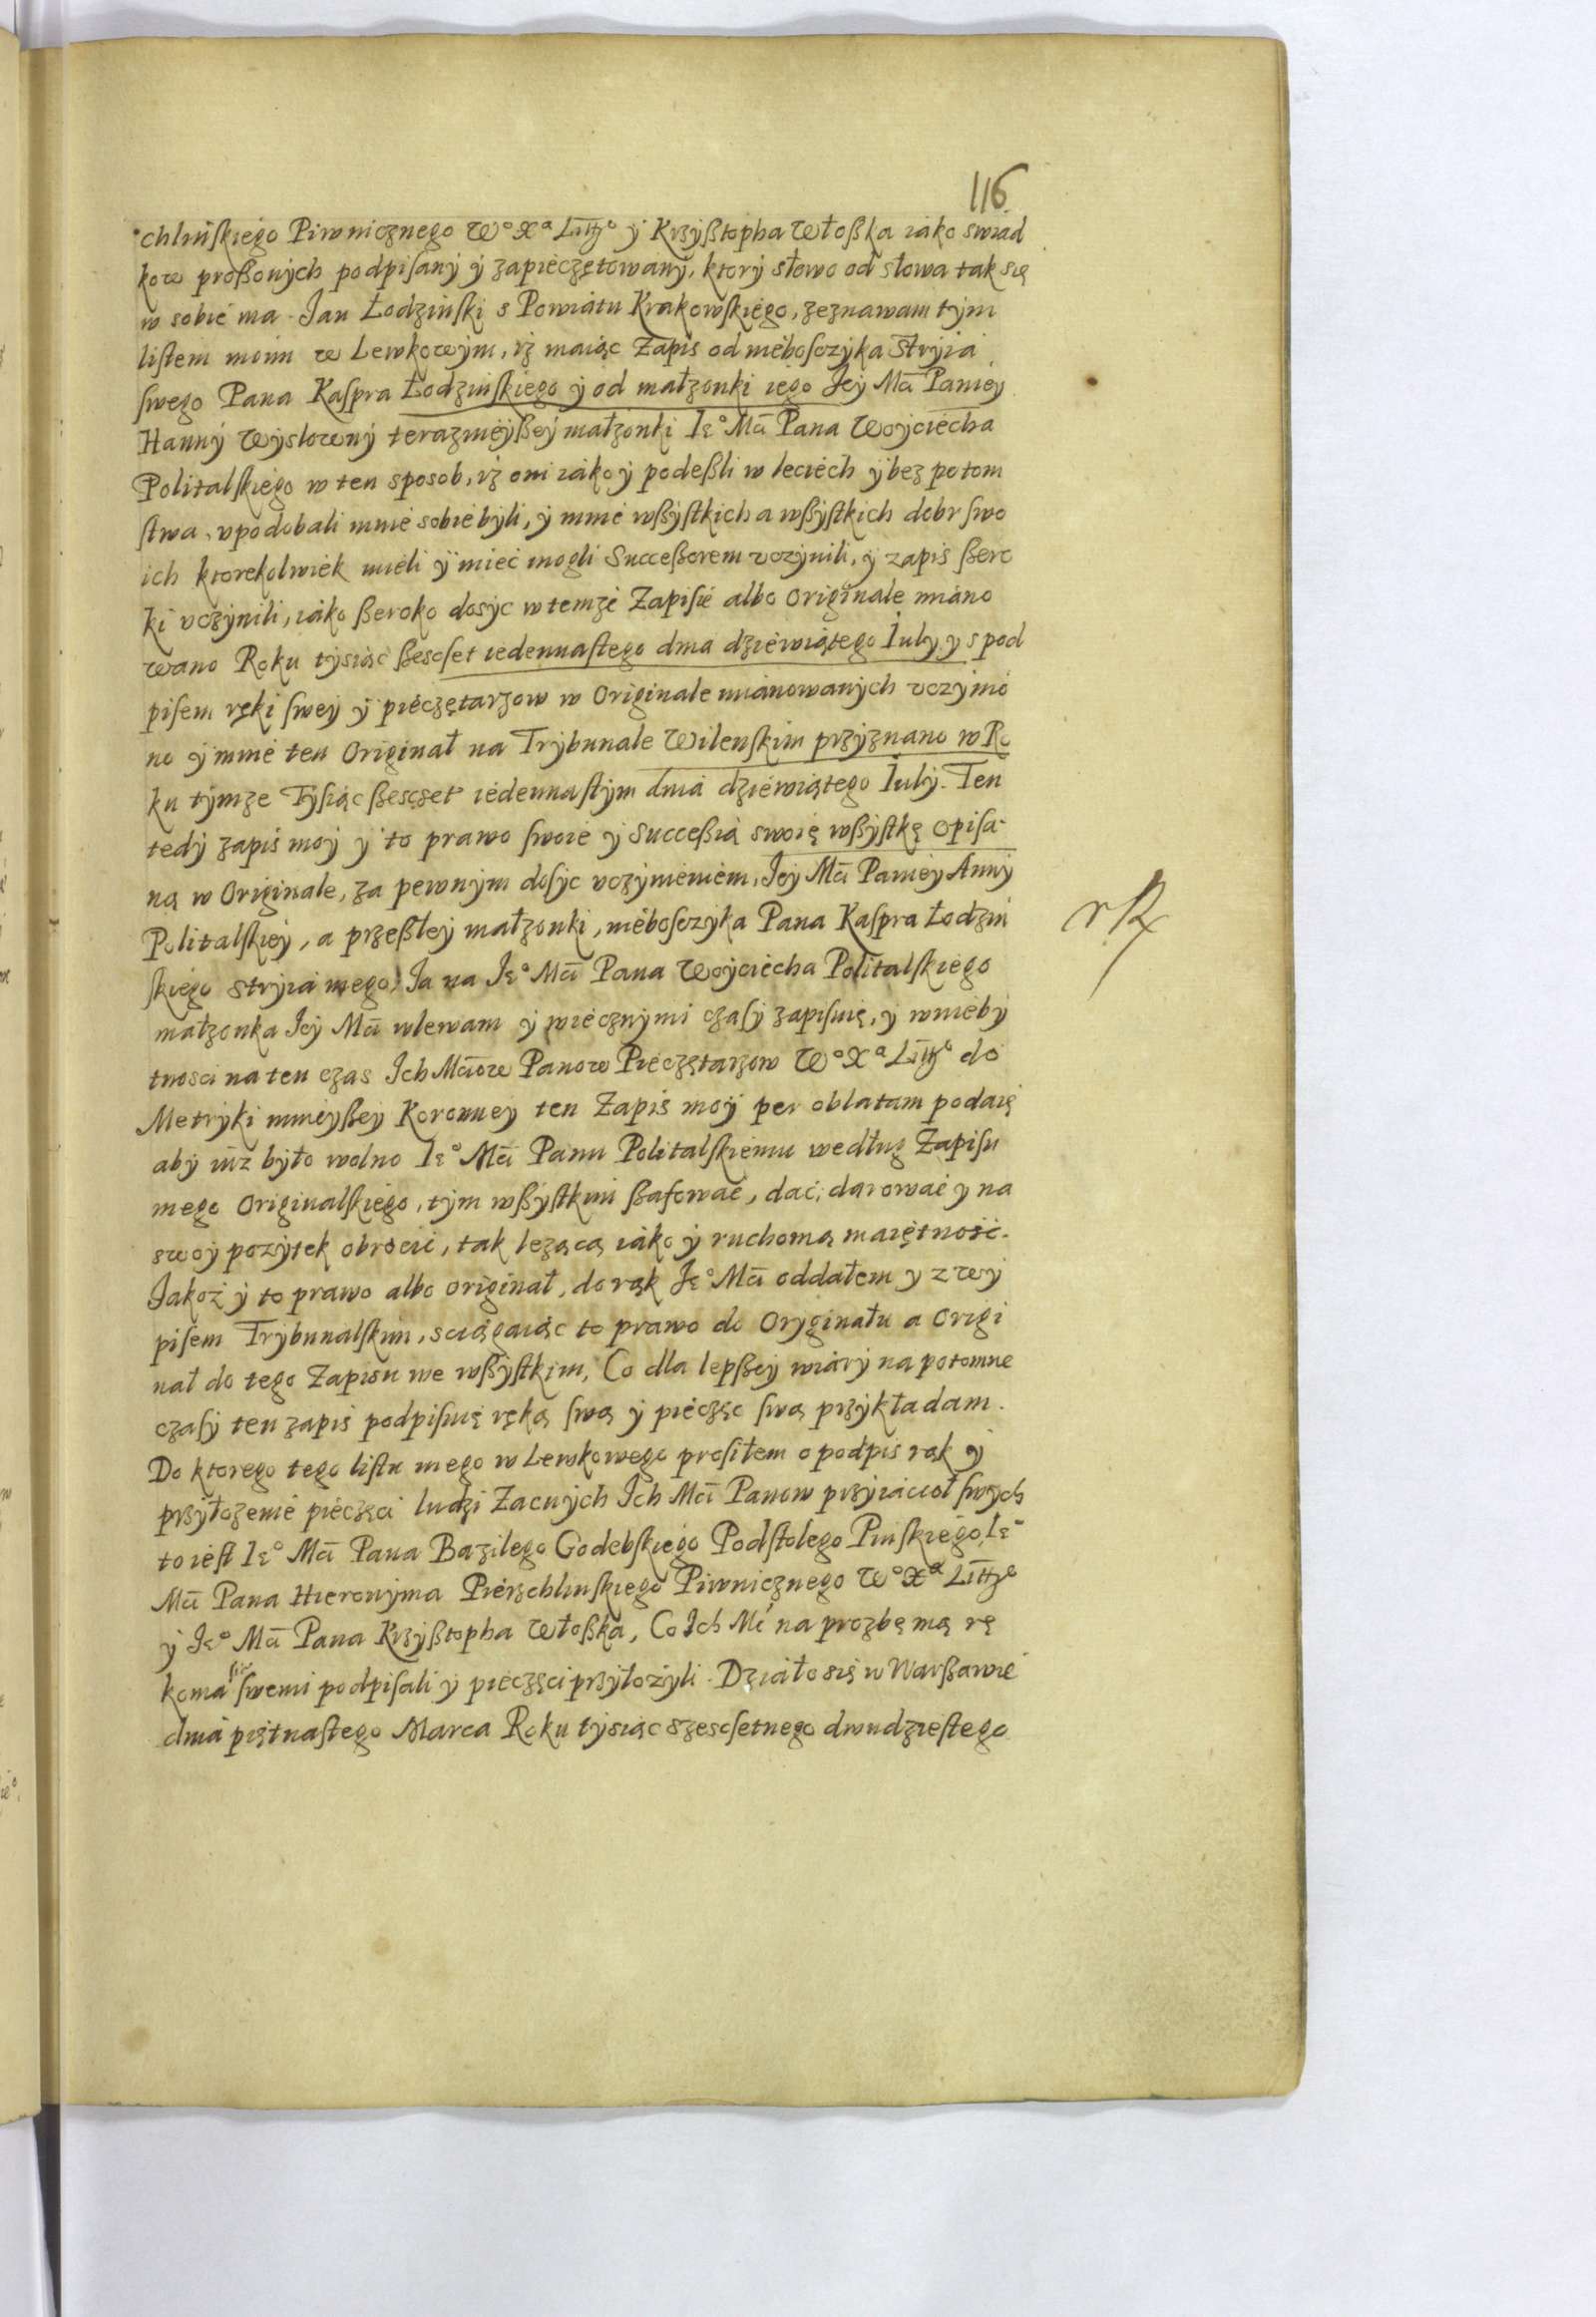 116
chlinskiego Piwnicznego Wº Xª Littgº ÿ Krzÿßtopha Włoßka iako swiad
kow proßonÿch podpisanÿ ÿ zapieczętowanÿ, ktorÿ słowo od słowa tak się
w sobie ma. Jan Łodzinski s Powiatu Krakowskiego, zeznawam tÿm
listem moim w Lewkowÿm, iż maiąc Zapis od niebosczÿka Strÿia
swego Pana Kaspra Łodzinskiego ÿ od małzonki iego Jeÿ Mci Panieÿ
Hannÿ Wÿslownÿ teraznieÿßeÿ małzonki Ieº Mci Pana Woÿciecha
Politalskiego w ten sposob, iż oni iako ÿ podeßli w leciech ÿ bez potom
stwa, vpodobali mnie sobie bÿli, ÿ mnie wßÿstkich a wßÿstkich dobr swo
ich ktorekolwiek mieli ÿ mieć mogli Succeßorem vczÿnili, ÿ zapis ßero
ki vczÿnili, iako ßeroko dosÿc w temze Zapisie albo Originale miano
wano Roku tÿsiąc ßescset iedennastego dnia dziewiątego Iulÿ ÿ s pod
pisem ręki sweÿ ÿ pieczętarzow w Originale mianowanÿch vczÿnio
no ÿ mnie ten Originał na Trÿbunale Wilenskim przÿznano w Ro
ku tÿmze Tÿsiąc ßescset iedennastÿm dnia dziewiątego Iulÿ. Ten
tedÿ zapis moÿ ÿ to prawo swoie ÿ Succeßią swoię wßÿstkę opisa-
ną w Originale, za pewnÿm dosÿc vczÿnieniem, Jeÿ Mci Panieÿ Annÿ
Politalskieÿ, a przeßłeÿ małzonki, niebosczÿka Pana Kaspra Łodzin
skiego strÿia mego, Ja na Jeº Mci Pana Woÿciecha Politalskiego
małzonka Jeÿ Mci wlewam ÿ wiecznÿmi czasÿ zapisuię, ÿ w niebÿ
tnosci na ten czas Ich Mciow Panow Pieczętarzow Wº Xª Littgº do
Metrÿki nnieÿßeÿ Koronneÿ ten Zapis moÿ per oblatam podaię
abÿ iuż bÿło wolno Ieº Mci Panu Politalskiemu według Zapisu
mego Originalskiego, tÿm wßÿstkim ßafować, dać, darować ÿ na
swoÿ pozÿtek obrocić, tak lezącą iako ÿ ruchomą maiętność.
Jakoż ÿ to prawo albo originał, do rąk Jeº Mci oddałem ÿ z wÿ
pisem Trÿbunalskim, sciągaiąc to prawo do Orÿginału a Origi
nał do tego Zapisu we wßÿstkim, Co dla lepßeÿ wiarÿ na potomne
czasÿ ten zapis podpisuię ręką swą ÿ pieczęc swą przÿkładam.
Do ktorego tego listu mego w Lewkowego prosiłem o podpis rąk ÿ
przÿłozenie pieczęci ludzi Zacnÿch Ich Mci Panow przÿiacioł swÿch
to iest Ieº Mci Pana Bazilego Godebskiego Podstolego Pinskiego, Ieº
Mci Pana Hieronÿma Pierzchlinskiego Piwnicznego Wº Xª Littgº
ÿ Jeº Mci Pana Krzÿßtopha Włoßka, Co Ich Mć na prozbę mą rę
koma swemi podpisali ÿ pieczęci przÿłożÿli. Działo się w Warßawie
dnia piątnastego Marca Roku tÿsiąc szescsetnego dwudziestego